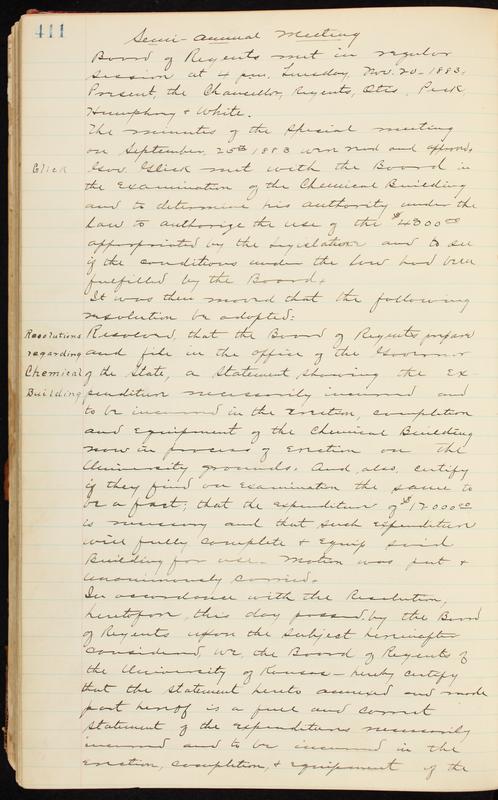 411
Semi-annual Meeting
Board of Regents met in regular
session at 4 p.m. Tuesday, Nov. 20 - 1883.
Present, the Chancellor, Regents, Otis, Peck,
Humphrey & White.
The minutes of the Special meeting
on September, 25th 1883 were read and approved.
Glick
Gov. Glick met with the Board in
the Examination of the Chemical Building
and to determine his authority under the
law to authorize the use of the $4000.00
appropriated by the Legislature and to see
if the conditions under the law had been
fulfilled by the Board.
It was then moved that the following
resolution be adopted:
Resolutions regarding Chemical Building
Resolved, that the Board of Regents prepare
and file in the office of the Governor
of the State, a statement showing the Ex
penditure necessarily incurred and
to be incurred in the erection, completion
and equipment of the Chemical Building
now in process of erection on the
University grounds. And also, certify
if they find on examination the same to
be a fact; that the expenditure of $12000.00
is necessary and that such expenditure
will fully complete & equip said
Building for use. Motion was put &
unanimously carried.
In accordance with the Resolution,
heretofore, this day passed, by the Board
of Regents upon the subject hereinafter
considered, we, the Board of Regents of
the University of Kansas - hereby certify
that the statement hereto annexed and made
part hereof is a full and correct
statement of the expenditures necessarily
incurred and to be incurred in the
erection, completion, & equipment of the